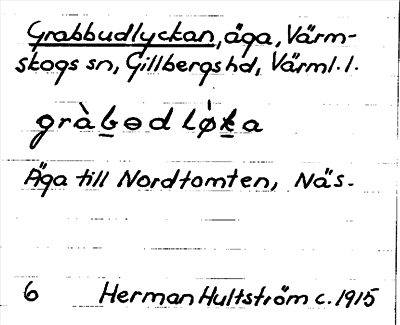 Grabbudlyckan, äga, Värm-
skogs sn, Gillbergs hd, Värml. l.
gràb̲ɵd lø̀k̲a
Äga till Nordtomten, Näs.
6 Herman Hultström c. 1915